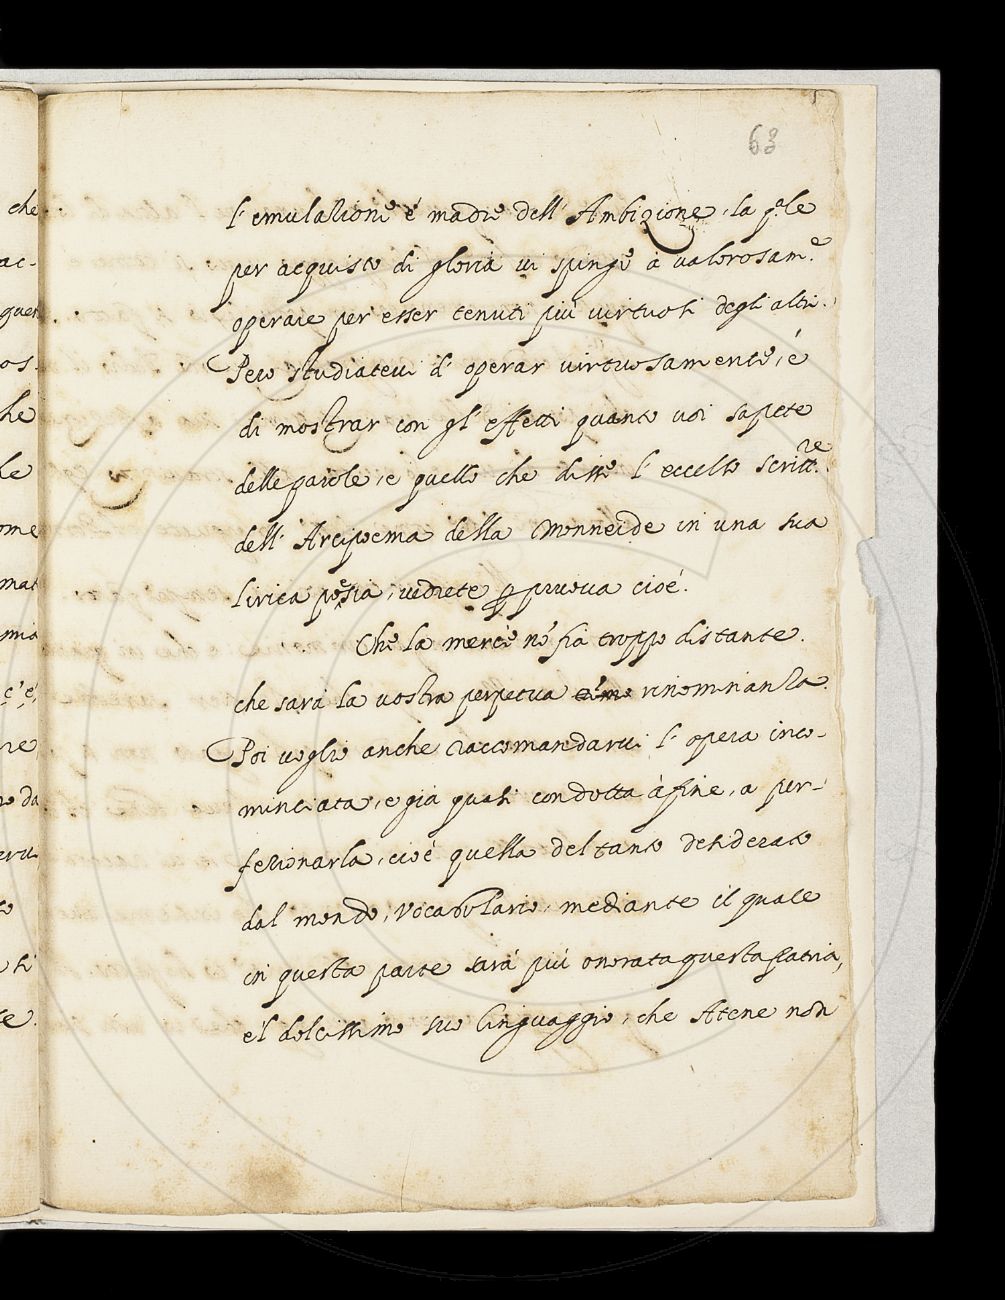 63
l'emulazione é madre dell' Ambizione, la q.le
per acquisto di gloria vi spinge à valorosam.e
operare per esser tenuti più virtuosi degli altri.
Però studiatevi d' operar virtuosamente, é
di mostrar con gl' effetti quanto voi sapete
delle parole, e quello che disse l' eccelso scritt.re
dell' Arcipoema della Monneide in una sua
lirica poesia, vedrete p pruova cioé.
Che la mercè nō fia troppo distante.
che sará la vostra perpetua rinominanza.
Poi voglio anche raccomandarvi l' opera inco-
minciata, e giá quasi condotta à fine, a per-
fezionarla, cioé quella del tanto desiderato
dal mondo, Vocabolario, mediante il quale
in questa parte sará piú onorata questa patria,
e'l dolcissimo suo linguaggio, che Atene non
che
ac-
quer
os.
he
le
ome
mat
mia
c'é,
re
o da
eru
to
si
te.